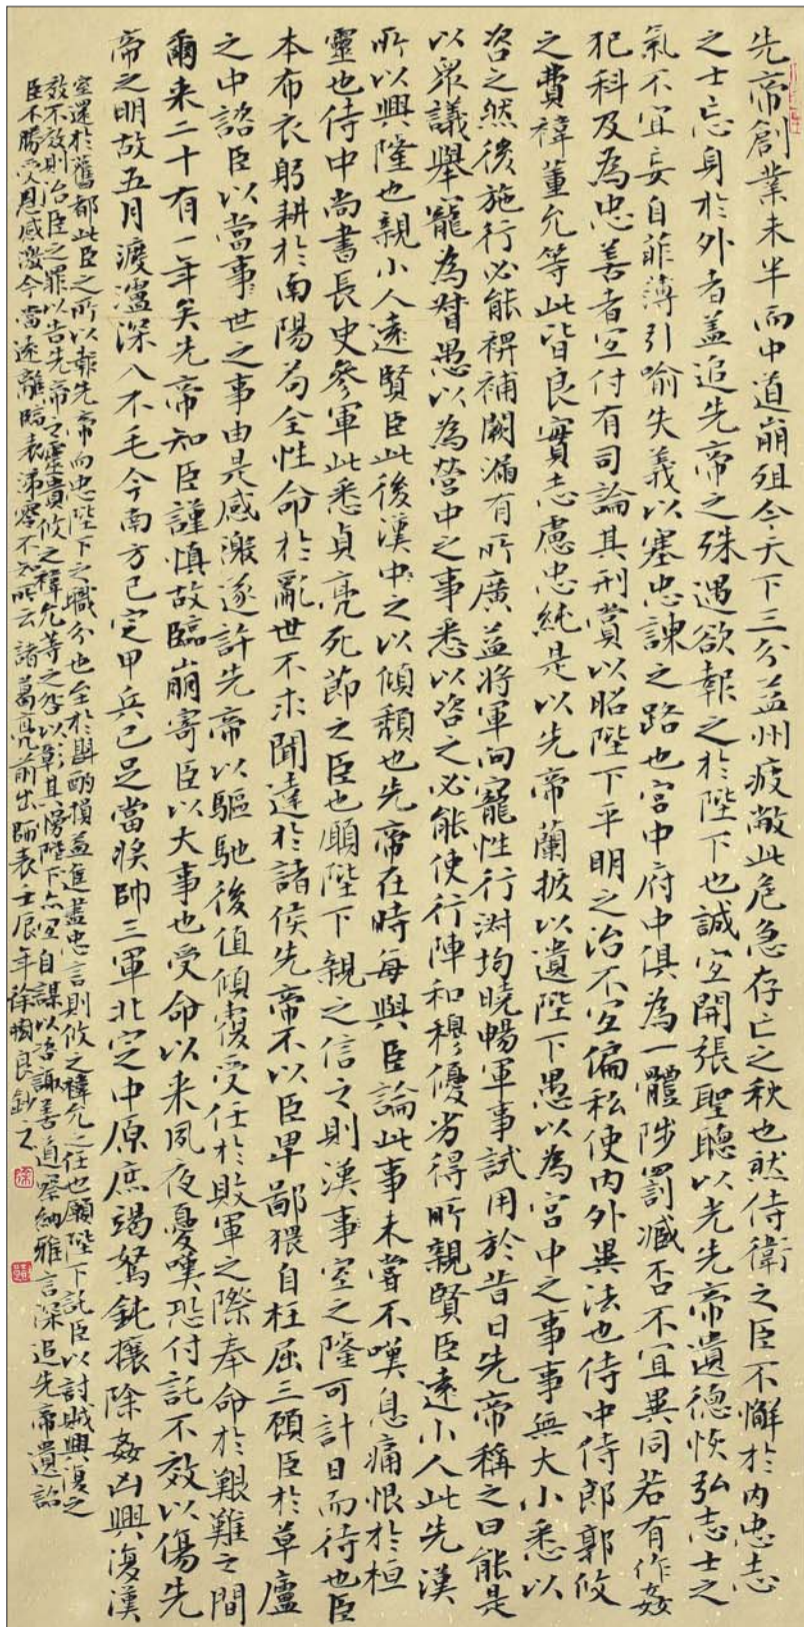 先帝創業未半而中道崩殂今天下三分益州疲敝此危急存亡之秋也然侍衛之臣不懈於內忠志
之士忘身於外者蓋追先帝之殊遇欲報之於陛下也誠宜開張聖聽以光先帝遺德恢弘志士之
氣不宜妄自菲薄引喻失義以塞忠諫之路也宮中府中俱為一體陟罰臧否不宜異同若有作姦
犯科及為忠善者宜付有司論其刑賞以昭陛下平明之治不宜偏私使內外異法也侍中侍郎郭攸
之費禕董允等此皆良實志慮忠純是以先帝蘭拔以遺陛下愚以為宮中之事事無大小悉以
咨之然後施行必能裨補闕漏有所廣益將軍向寵性行淑均曉暢軍事試用於昔日先帝稱之曰能是
以眾議舉寵為督愚以為營中之事悉以咨之必能使行陣和穆優劣得所親賢臣遠小人此先漢
所以興隆也親小人遠賢臣此後漢中之以傾頹也先帝在時每與臣論此事未嘗不嘆息痛恨於桓
靈也侍中尚書長史參軍此悉貞亮死節之臣也願陛下親之信之則漢事室之隆可計日而待也臣
本布衣躬耕於南陽苟全性命於亂世不求聞達於諸侯先帝不以臣卑鄙猥自枉屈三顧臣於草廬
之中諮臣以當事世之事由是感激遂許先帝以驅馳後值傾覆受任於敗軍之際奉命於艱難之間
爾来二十有一年矣先帝知臣謹慎故臨崩寄臣以大事也受命以来夙夜憂嘆恐付託不效以傷先
帝之明故五月渡瀘深入不毛今南方已定甲兵已足當獎帥三軍北定中原庶竭駑鈍攘除姦凶興復漢
室還於舊都此臣之所以報先帝而忠陛下之職分也至於斟酌損益進盡忠言則攸之禕允之任也願陛下託臣以討賊興復之
效不效則治臣之罪以告先帝之靈責攸之禕允等之咎以彰其慢陛下亦宜自謀以咨諏善道察納雅言深追先帝遺詔
臣不勝受恩感激今當遠離臨表涕零不知所云諸葛亮前出師表壬辰年徐良鈔之
徐